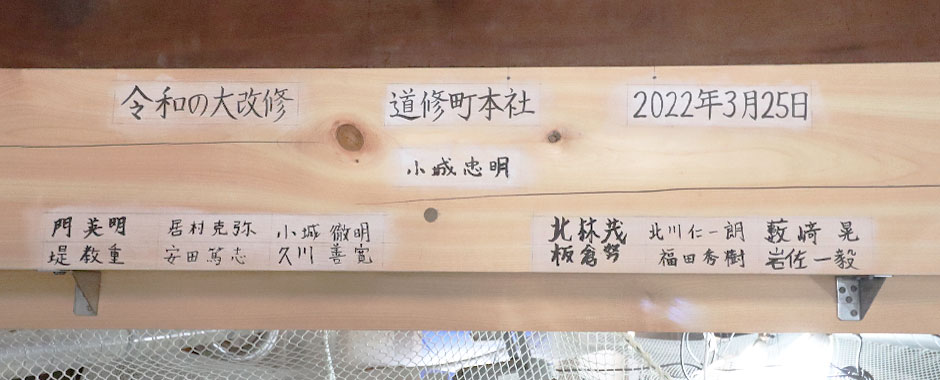 令和の大改修 道修町本社 2022年3月25日
小城忠明
門 英明 居村克弥 小城 徹明 北林茂 北川仁一朗 藪﨑 晃
堤 教重 安田篤志 久川 善寛 板倉努 福田秀樹 岩佐一毅